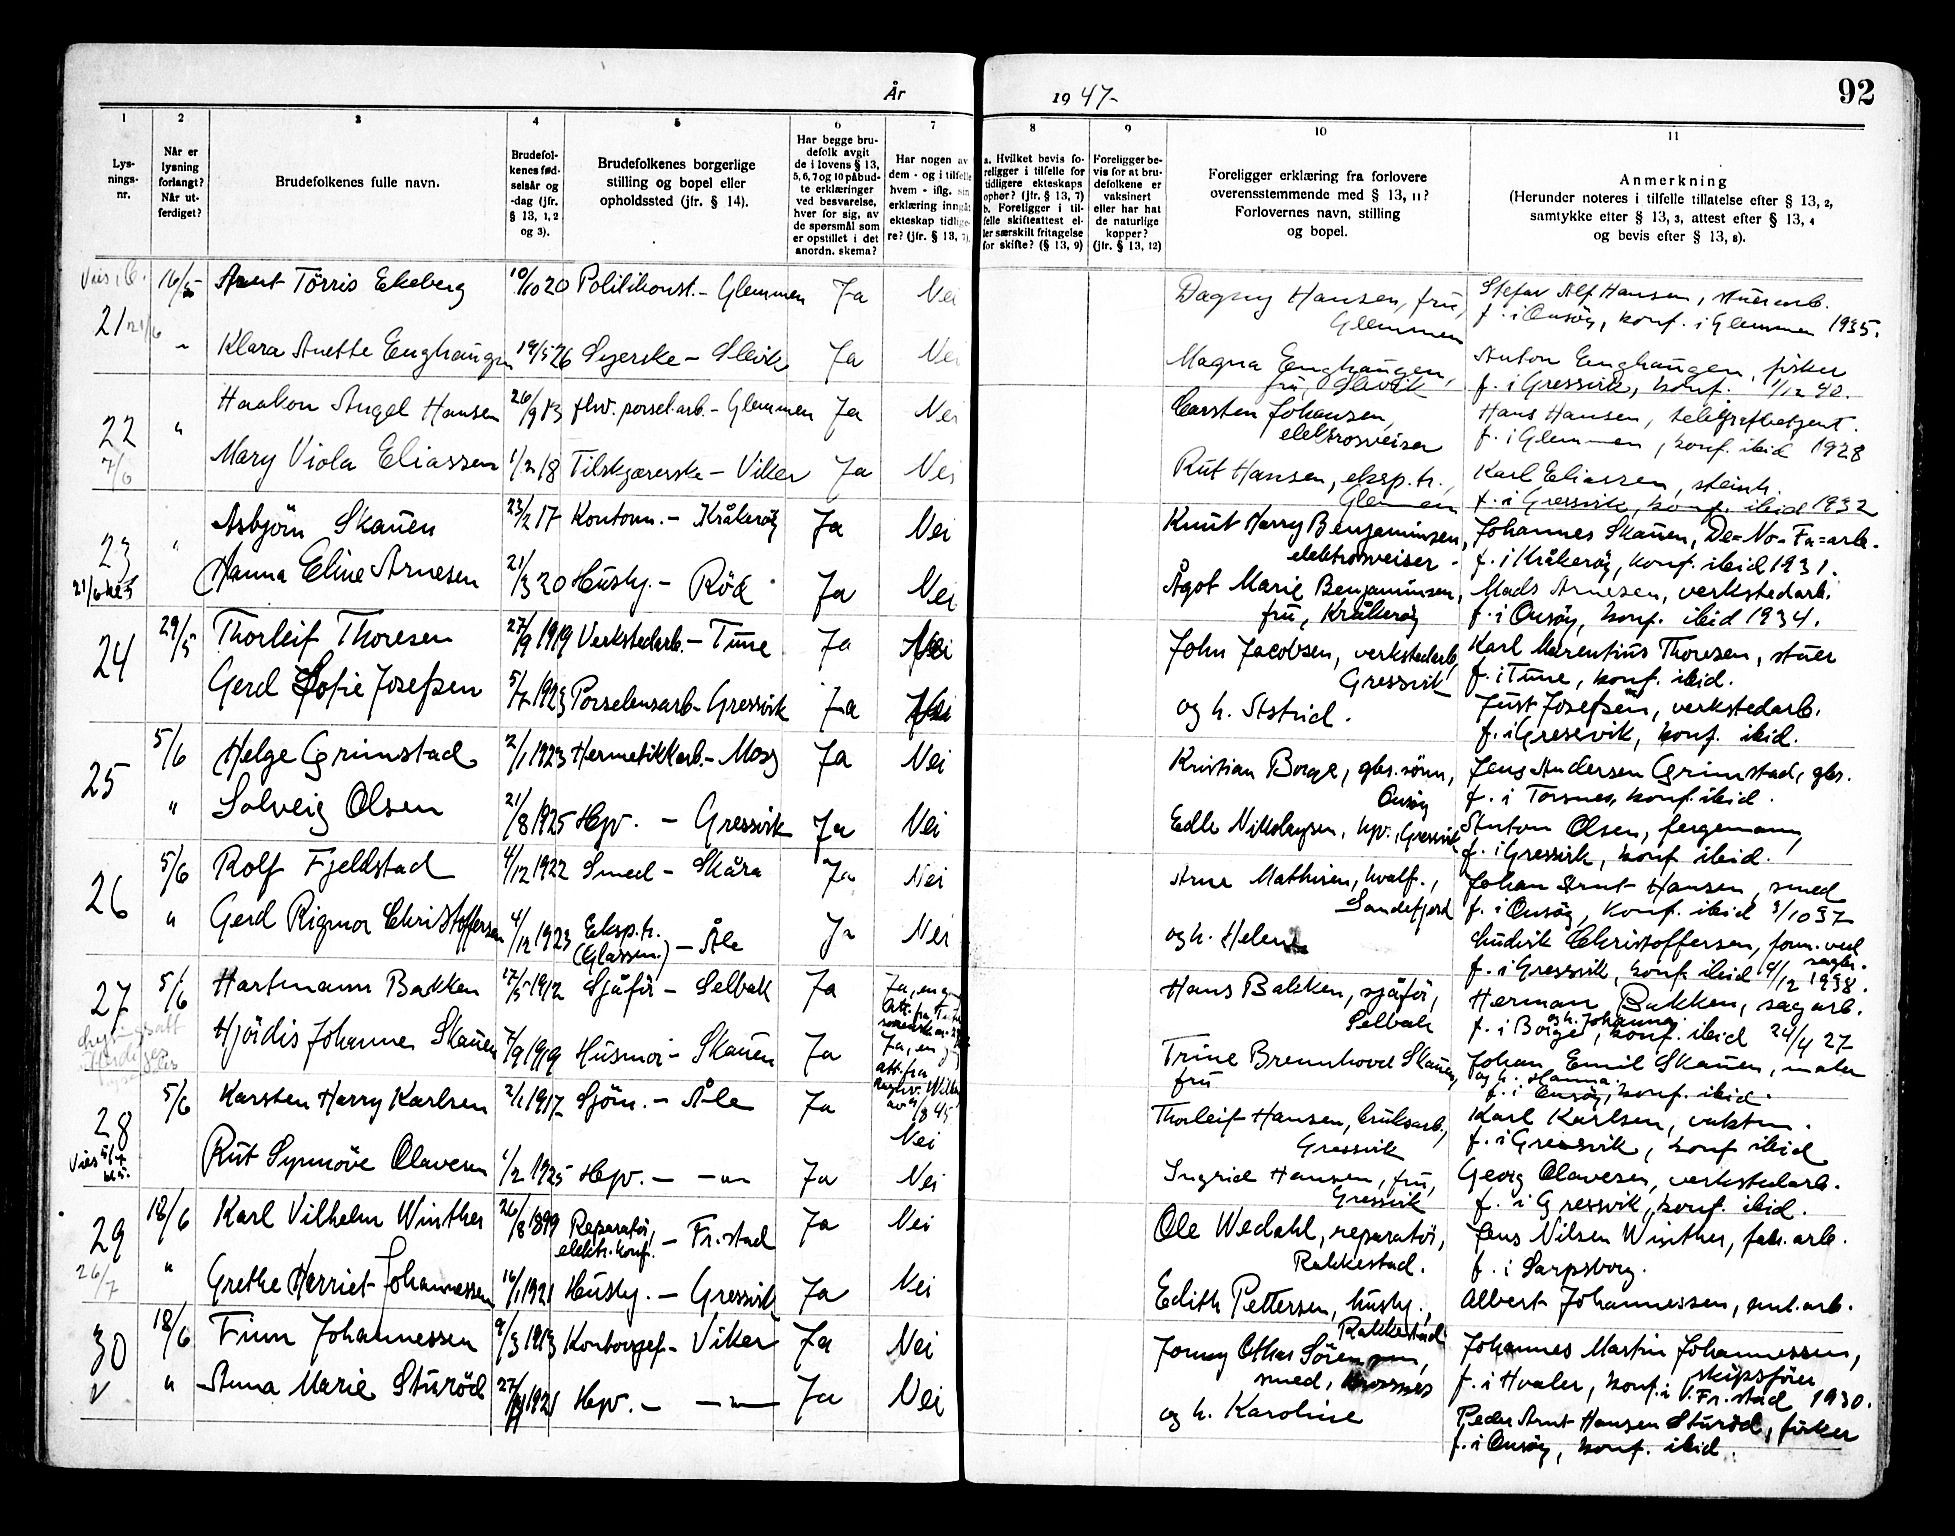 År 1947-
92
1 2 3 4 5 6 7 8 9 10 11
Lys-
nings-
nr.
Når er
lysning
forlangt?
Når ut-
ferdiget?
Brudefolkenes fulle navn.
Brudefol-
kenes fød-
selsår og
-dag (jfr.
§ 13, 1, 2
og 3).
Brudefolkenes borgerlige
stilling og bopel eller
opholdssted (jfr. § 14).
Har begge bru-
defolk avgit
de i lovens § 13,
5, 6, 7 og 10 påbud-
te erklæringer
ved besvarelse,
hver for sig, av
de spørsmål som
er opstillet i det
anordn. skema?
Har nogen av
dem - og i tilfelle
hvem - iflg. sin
erklæring inngåt
ekteskap tidlige-
re? (jfr. § 13, 7).
a. Hvilket bevis fo-
religger i tilfelle for
tidligere ekteskaps
ophør? (jfr. § 13, 7)
b. Foreligger i til-
felle skifteattest el-
ler særskilt fritagelse
for skifte? (§ 13, 9)
Foreligger be-
vis for at bru-
defolkene er
vaksinert
eller har hat
de naturlige
kopper?
(jfr. § 13, 12)
Foreligger erklæring fra forlovere
overensstemmende med § 13, 11?
Forlovernes navn, stilling
og bopel.
Anmerkning
(Herunder noteres i tilfelle tillatelse efter § 13, 2,
samtykke efter § 13, 3, attest efter § 13, 4
og bevis efter § 13, 8).
21 16/5 Arnt Törris Ekeberg 10/10 20 Politikonst. - Glemmen Ja Nei Dagny Hansen, fru, Stefar Alf Hansen, stuerarb.
Glemmen f. i Onsöy, konf. i Glemmen 1935.
" Klara Anette Enghaugen 19/5 26 Syerske - Slevik Ja Nei Magna Enghaugen, Anton Enghaugen, fisker
fru, Slevik f. i Gressvik, konf. 1/12 40.
22 " Haakon Angel Hansen 26/9 13 flw. porsel.arb. - Glemmen Ja Nei Carsten Johansen, Hans Hansen, telegrafbetjent.
elektrosveiser f. i Glemmen, konf. ibid 1928
7/6 Mary Viola Eliassen 1/2 18 Tilskjærerske - Viker Ja Nei Rut Hansen, eksp.tr., Karl Eliassen, steinh.
Glemmen f. i Gressvik, konf. ibid 1932
23 " Asbjörn Skauen 23/2 17 Kontorm. - Kråkeröy Ja Nei Knut Harry Benjaminsen, Johannes Skauen, De-No-Fa-arb.
elektrosveiser - f. i Kråkeröy, konf. ibid 1931.
21/6 kl 5 Hanna Eline Arnesen 21/3 20 Husby. - Röd Ja Nei Ågot Marie Benjaminsen, Mads Arnesen, verkstedarb.
fru, Kråkeröy f. i Onsöy, konf. ibid 1934.
24 29/5 Thorleif Thoresen 27/9 1919 Verkstedarb. - Tune Ja Nei John Jacobsen, verkstedarb, Karl Marentius Thoresen, stuer
Gressvik f. i Tune, konf. ibid.
Gerd Sofie Josefsen 5/7 1923 Porselensarb - Gressvik Ja Nei og h. Astrid. Just Josefsen, verkstedarb.
f. i Gressvik, konf. ibid.
25 5/6 Helge Grimstad 2/1 1923 Hermetikkarb. - Moss Ja Nei Kristian Borge, gbr.sönn, Jens Andersen Grimstad, gbr.
Onsöy f. i Torsnes, konf. ibid.
" Solveig Olsen 21/8 1925 Hjv. - Gressvik Ja Nei Edle Nikolaysen, hjv., Gressvik Anton Olsen, fergemann,
f. i Gressvik, konf ibid.
26 5/6 Rolf Fjellstad 4/12 1922 Smed - Skåra Ja Nei Arne Mathisen, hvalf., Johan Arnt Hansen, smed
Sandefjord f. i Onsöy, konf. ibid 3/10 37
" Gerd Rigmor Christoffersen 4/12 1923 Eksp.tr. (Glassm.) - Åle Ja Nei og h. Helene Ludvik Christoffersen, form. ved sagbr.
f. i Gressvik, konf. ibid 4/12 1938.
27 5/6 Hartmann Bakken 17/5 1912 Sjåför - Selbak Ja Ja, en g. Hans Bakken, sjåför, Herman Bakken, sagarb.
Selbak og h. Johanna f. i Borge, konf. ibid 24/4 27
Hjördis Johanne Skauen 7/9 1919 Husmor - Skauen Ja Ja, en g. Trine Brennhovd Skauen, Johan Emil Skauen, maler
att. fra fru og h. Hanna f. i Onsöy, konf. ibid.
28 5/6 Karsten Harry Karlsen 2/1 1917 Sjöm. - Åle Ja Nei Thorleif Hansen, bruksarb, Karl Karlsen, vaktm.
Gressvik f. i Gressvik, konf ibid
Vies 5/7 kl 5. Rut Synnöve Olavesen 1/2 1925 Hjv. - -"- Ja Nei Ingrid Hansen, fru, Georg Olavesen, verkstedarb.
Gressvik f. i Gressvik, konf. ibid.
29 18/6 Karl Vilhelm Winther 26/8 1899 Reparatör, elektr. konf. - Fr.stad Ja Nei Ole Wedahl, reparatör, Jens Nilsen Winther, fabr.arb.
Rakkestad. f. i Sarpsborg.
26/7 " Grethe Harriet Johannessen 16/1 1921 Husby. - Gressvik Ja Nei Edith Pettersen, husby., Albert Johannessen, mel.arb.
Rakkestad
30 18/6 Finn Johannessen 9/3 1913 Kontorsjef - Viker Ja Nei Jonny Othar Sörensen, Johannes Martin Johannessen,
smed, Krossnes skipsförer f. i Hvaler, konf. i V. Fr.stad 1930.
v " Anna Marie Sturöd 27/11 1921 Hjv. - -"- Ja Nei og h. Karoline Peder Arnt Hansen Sturöd, fisker
f. i Onsöy, konf. ibid.